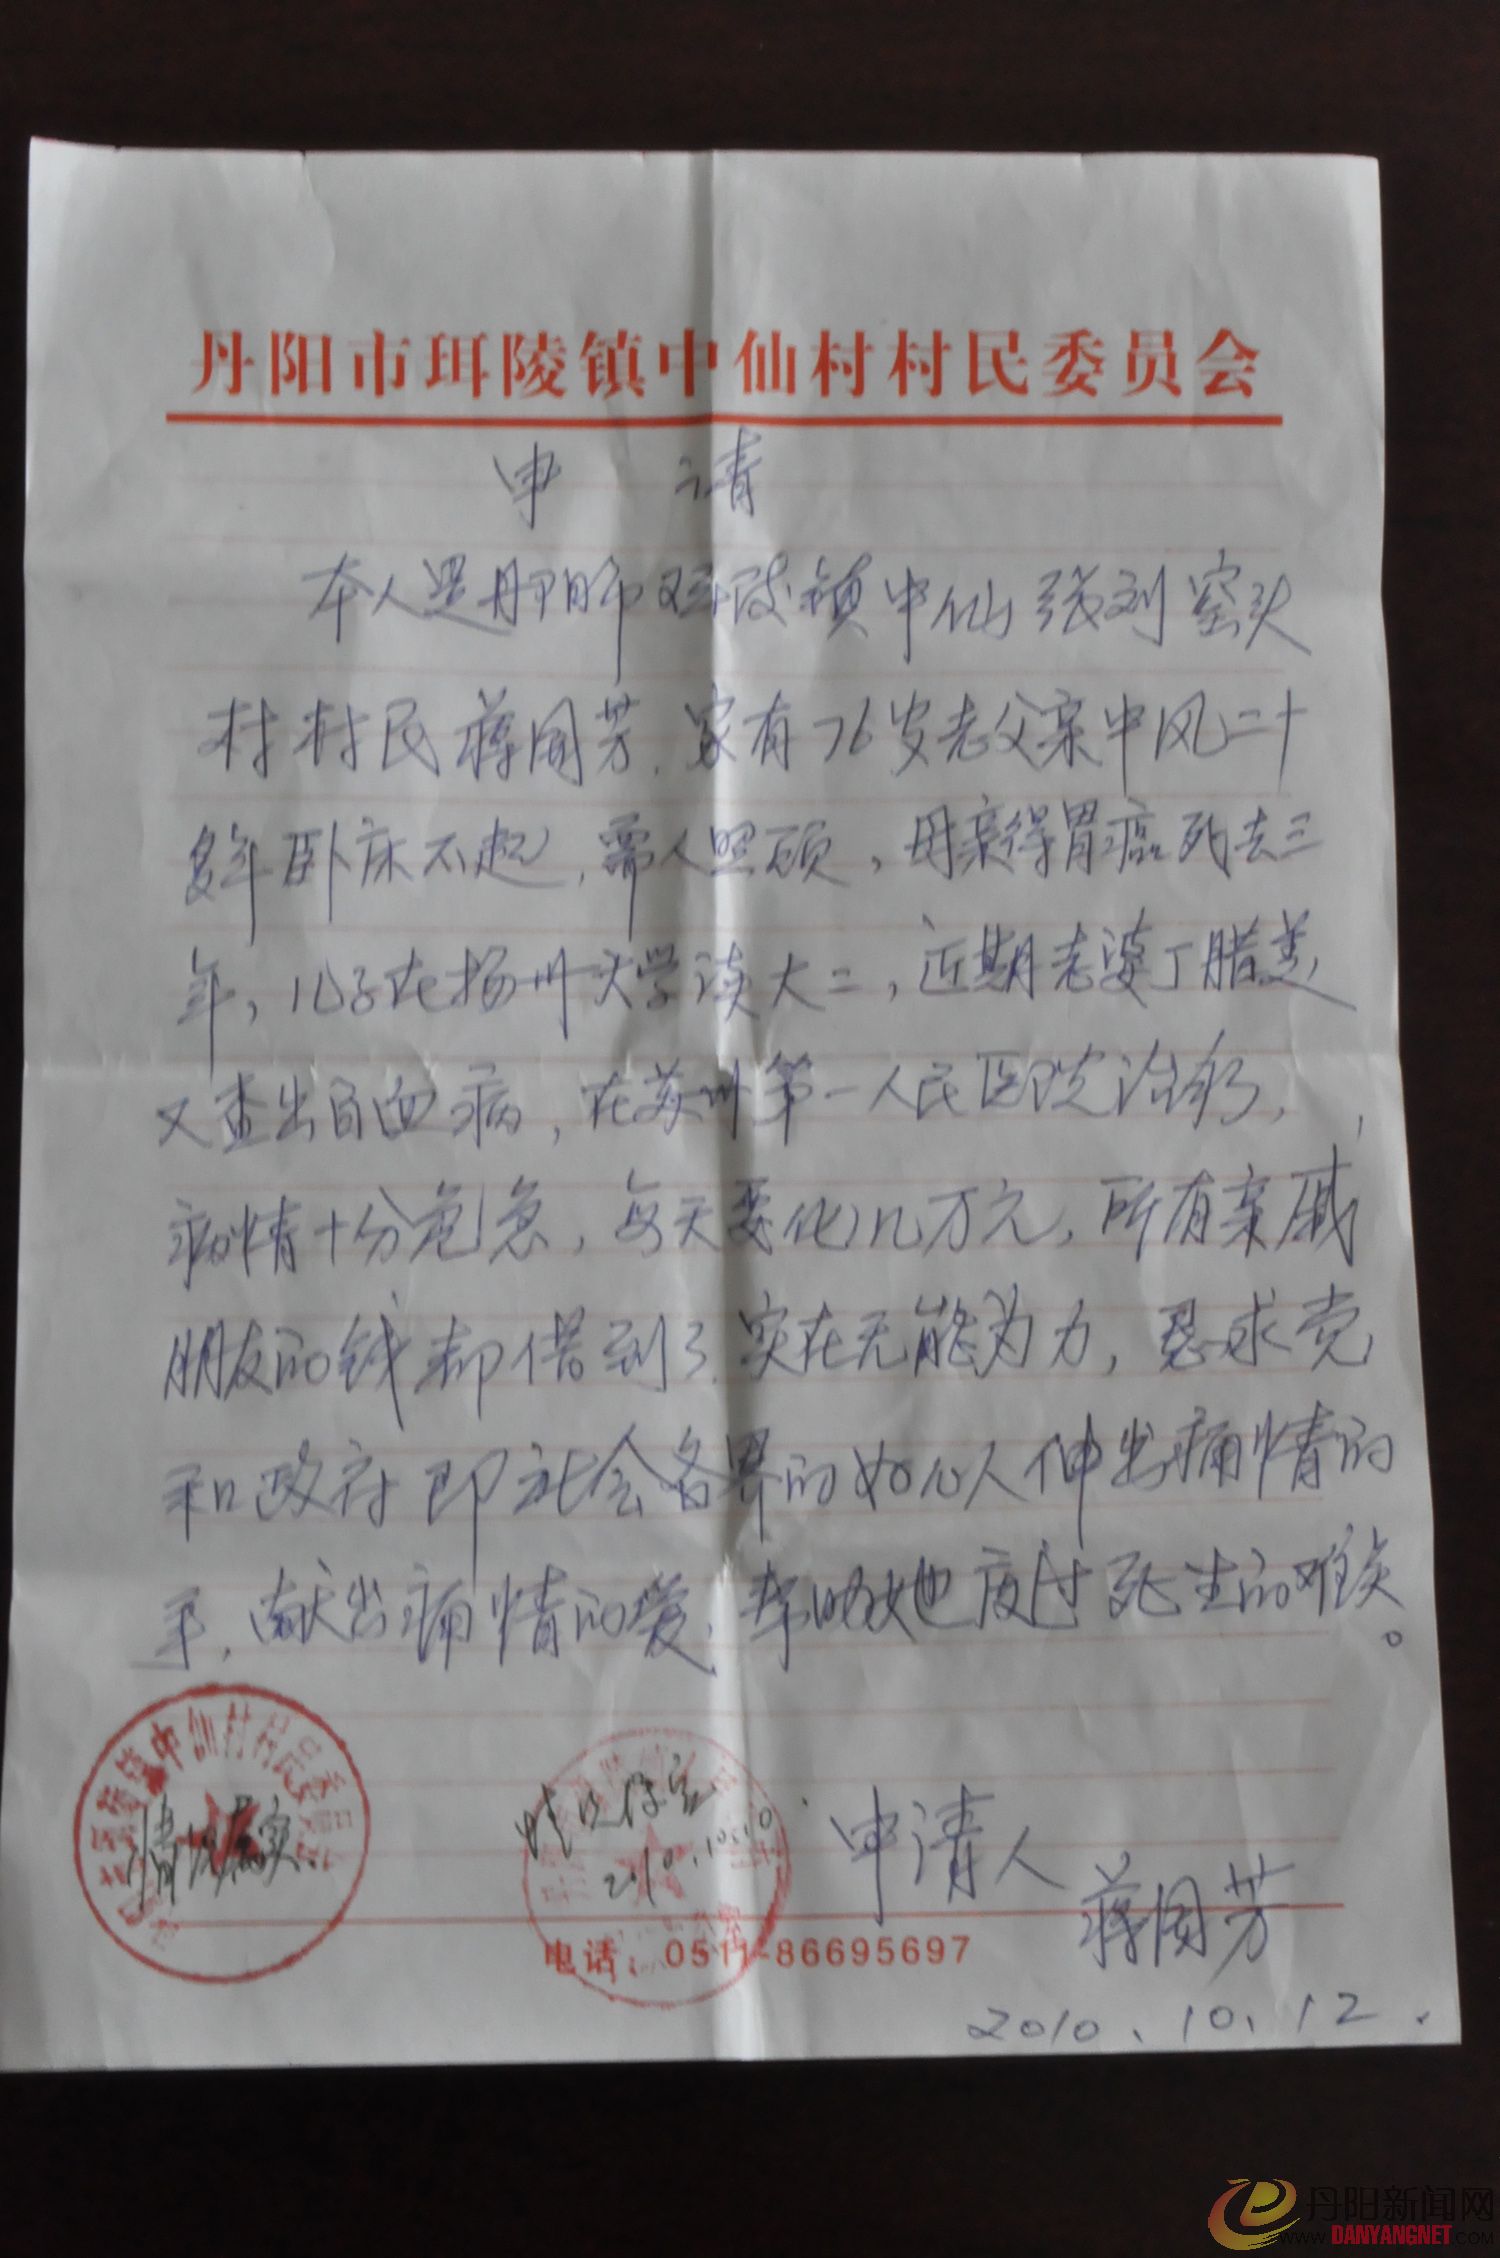 丹阳市珥陵镇中仙村村民委员会
申 请
本人是丹阳市珥陵镇中仙张刘窑头
村村民蒋国芳.家有76岁老父亲中风二十
多年卧床不起,需人照顾,母亲得胃癌死去三
年,儿子在扬州大学读大二,近期老婆丁腊美
又查出白血病,在苏州第一人民医院治疗,
病情十分危急,每天要化几万元,所有亲戚
朋友的钱都借到了.实在无能为力,恳求党
和政府即社会各界的好心人伸出痛情的
手,献出痛情的爱,帮助她度过死生的难关。
中仙村村民委员
情况属实.
情况属实
2010.10.10
申请人
蒋国芳
电话:0511-86695697
2010.10.12.
丹阳新闻网
WWW.DANYANGNET.COM